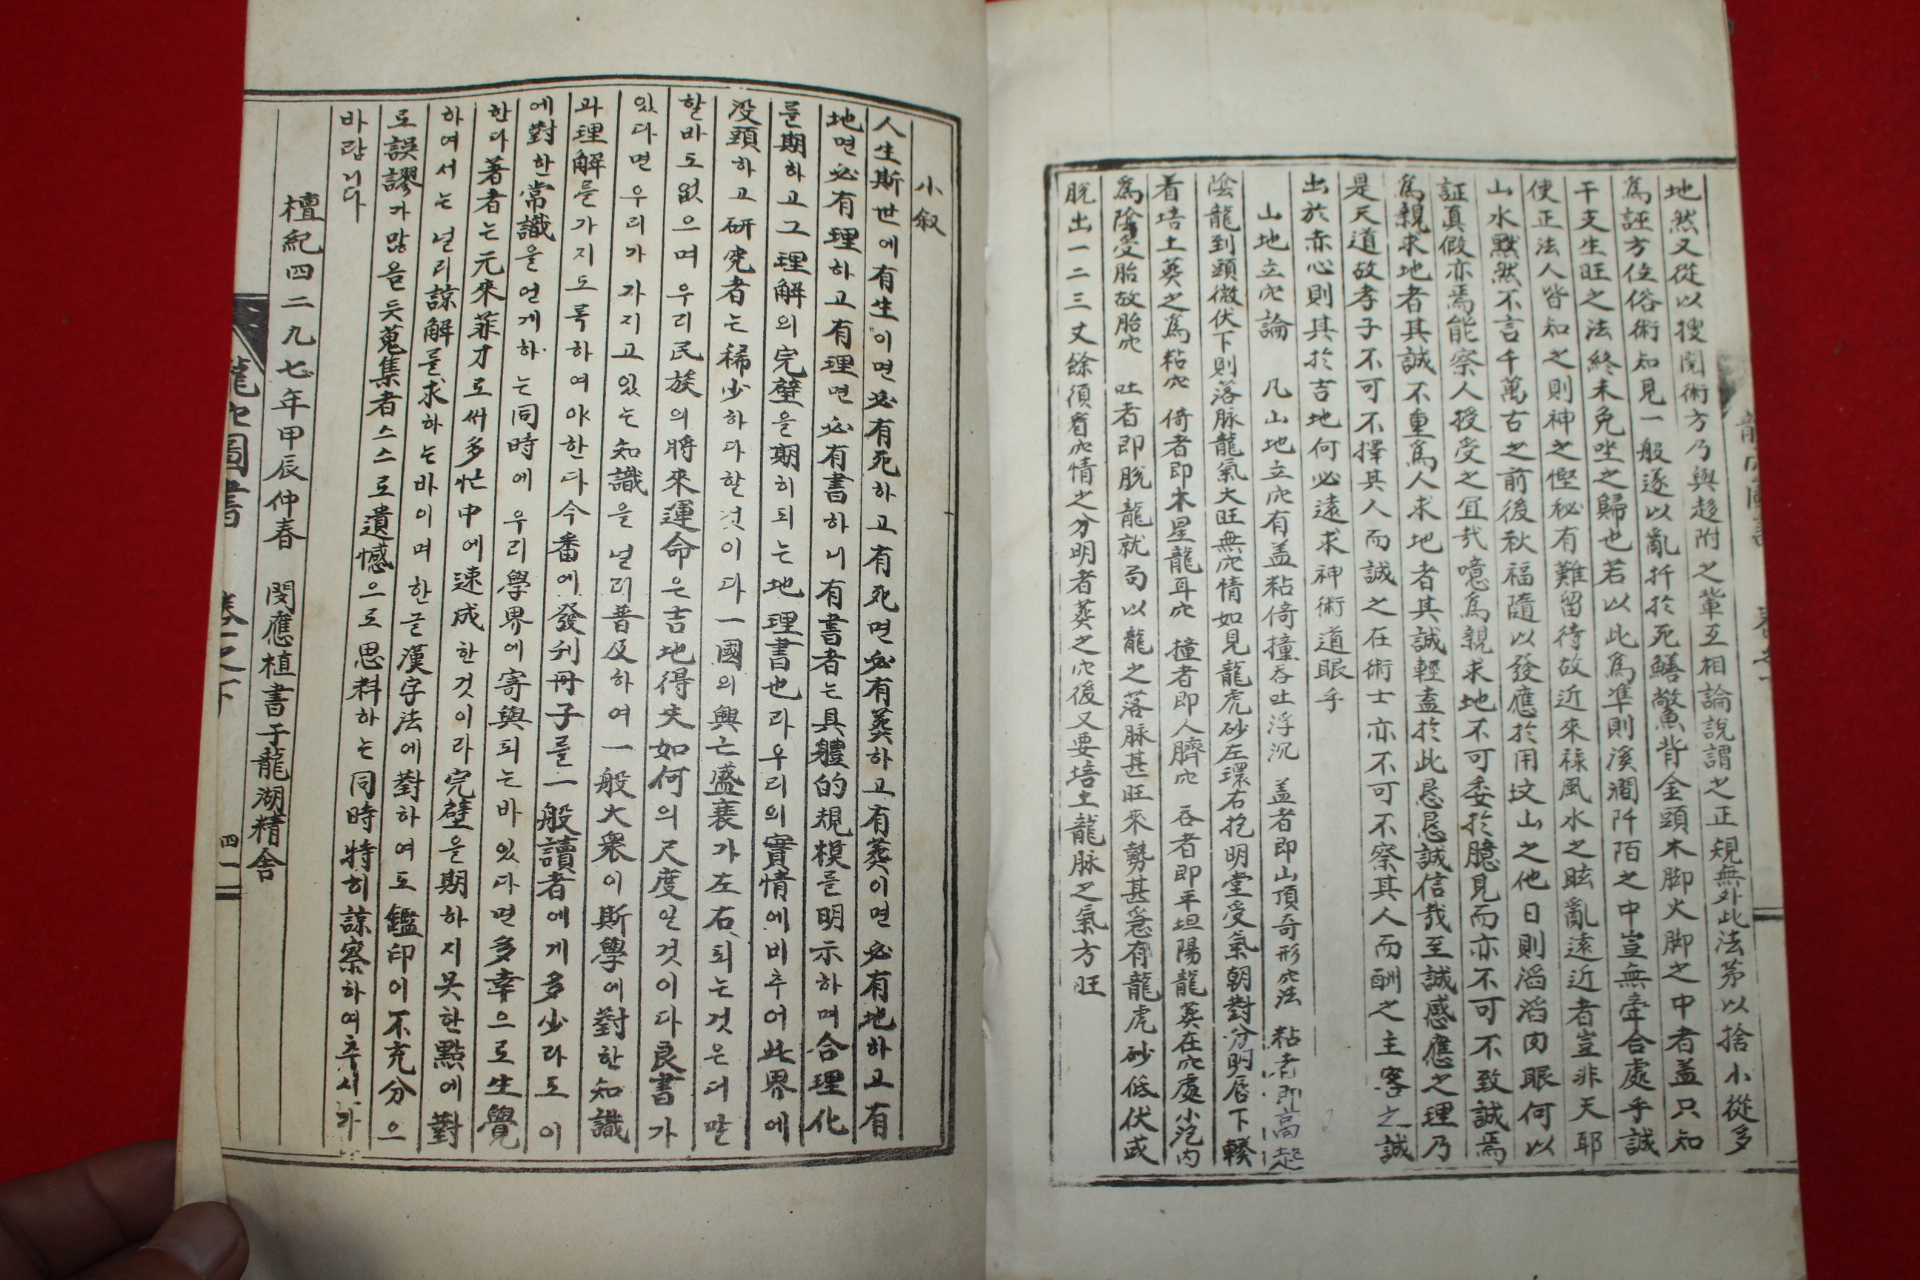 地然又從以搜閱術方乃與趍附之輩互相論說謂之正規無外此法茅以捨小從多
爲誣方位俗術知見一般遂以亂扦於死鱔鱉背金頭木脚火脚之中者盖只知
干支生旺之法終未免坐之歸也若以此爲準則溪澗阡陌之中豈無牽合處乎誠
使正法人皆知之則神之慳秘有難留待故近來祿風水之眩亂遠近者豈非天耶
山水黙然不言千萬古之前後秋福隨以發應於用坟山之他日則滔滔肉眼何以
証眞假亦焉能察人授受之宜哉噫爲親求地不可委於臆見而亦不可不致誠焉
爲親求地者其誠不重爲人求地者其誠輕盖於此恳恳誠信哉至誠感應之理乃
是天道故孝子不可不擇其人而誠之在術士亦不可不察其人而酬之主客之誠
出於赤心則其於吉地何必遠求神術道眼乎
山地立穴論 凡山地立穴有盖粘倚撞吞吐浮沉 盖者即山頂奇形穴法 粘者即高起
陰龍到頭微伏下則落脉龍氣大旺無穴情如見龍虎砂左環右抱明堂受氣朝對分明唇下
着培土葬之爲粘穴 倚者即木星龍耳穴 撞者即人臍穴 呑者即平坦陽龍葬在穴處小泡內
爲陰受胎故胎穴 吐者即脫龍就局以龍之落脉甚旺來勢甚急有龍虎砂低伏或
脫出一二三丈餘須看穴情之分明者葬之穴後又要培土龍脉之氣方旺
小叙
人生斯世에有生이면必有死하고有死면必有葬하고有葬이면必有地하고有
地면必有理하고有理면必有書하니有書者는具軆的規模를明示하며合理化
를期하고그理解의完壁을期히되는地理書也라우리의實情에비추어此界에
沒頭하고硏究者는稀少하다할것이다一國의興亡盛衰가左右되는것은더말
할바도없으며우리民族의將來運命은吉地得失如何의尺度인것이다良書가
있다면우리가가지고있는知識을널리普及하여一般大衆이斯學에對한知識
과理解를가지도록하여야한다今番에發刊冊子를一般讀者에게多少라도이
에對한常識을얻게하는同時에우리學界에寄與되는바있다면多幸으로生覺
한다著者는元來菲才로써多忙中에速成한것이라完壁을期하지못한點에對
하여서는널리諒解를求하는바이며한글漢字法에對하여도鑑印이不充分으
로誤謬가많음듯蒐集者스스로遺憾으로思料하는同時特히諒察하여주시기
바랍니다
檀紀四二九七年甲辰仲春 閔應植書于龍湖精舍
龍穴圖書 卷之下 四一